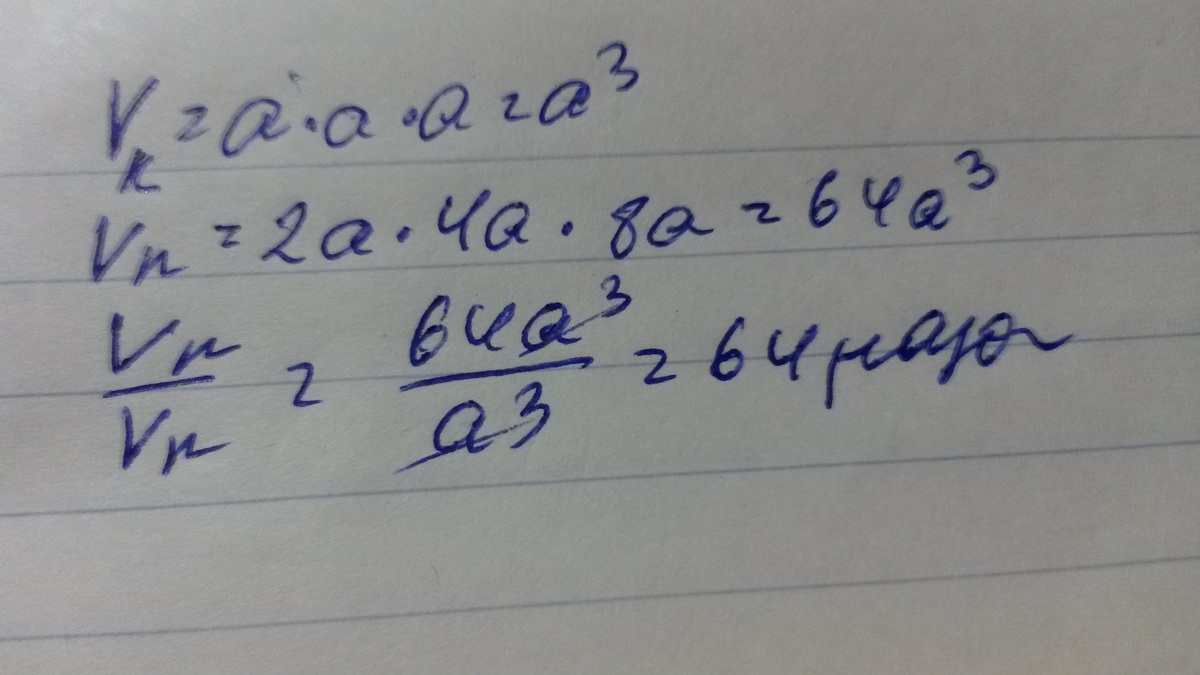 Vк = a · a · a = a³
Vп = 2a · 4a · 8a = 64a³
Vп/Vк = 64a³/a3 = 64 раза